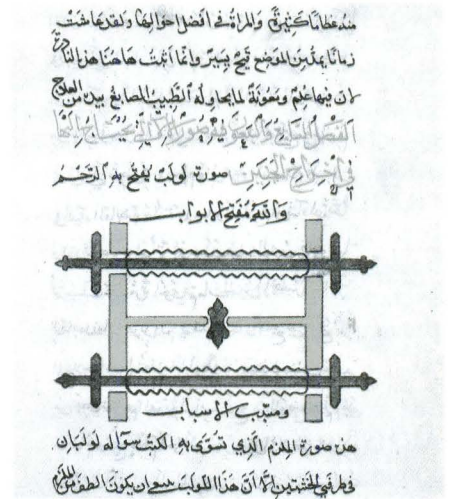 منه عظاما كثيرة والمراة في افضل احوالها وقد عاشت
زمانا يمد من الموضع قيح يسير وانما اثبت هاهنا هذه النادرة
لان فيها علم ومعونة لما يحاوله الطبيب الصانع بيده من العلاج
الفصل السابع والسبعون في صورة الالات التي يحتاج اليها
في اخراج الجنين صورة لولب يفتح به الرحم
والله مفتح الابواب
ومسبب الاسباب
هذه صورة الملزم الذي تسوى به الكتب سوا له لولبان
في طرفي الخشبتين الا ان هذا اللولب ان يكون الطف من الملزم